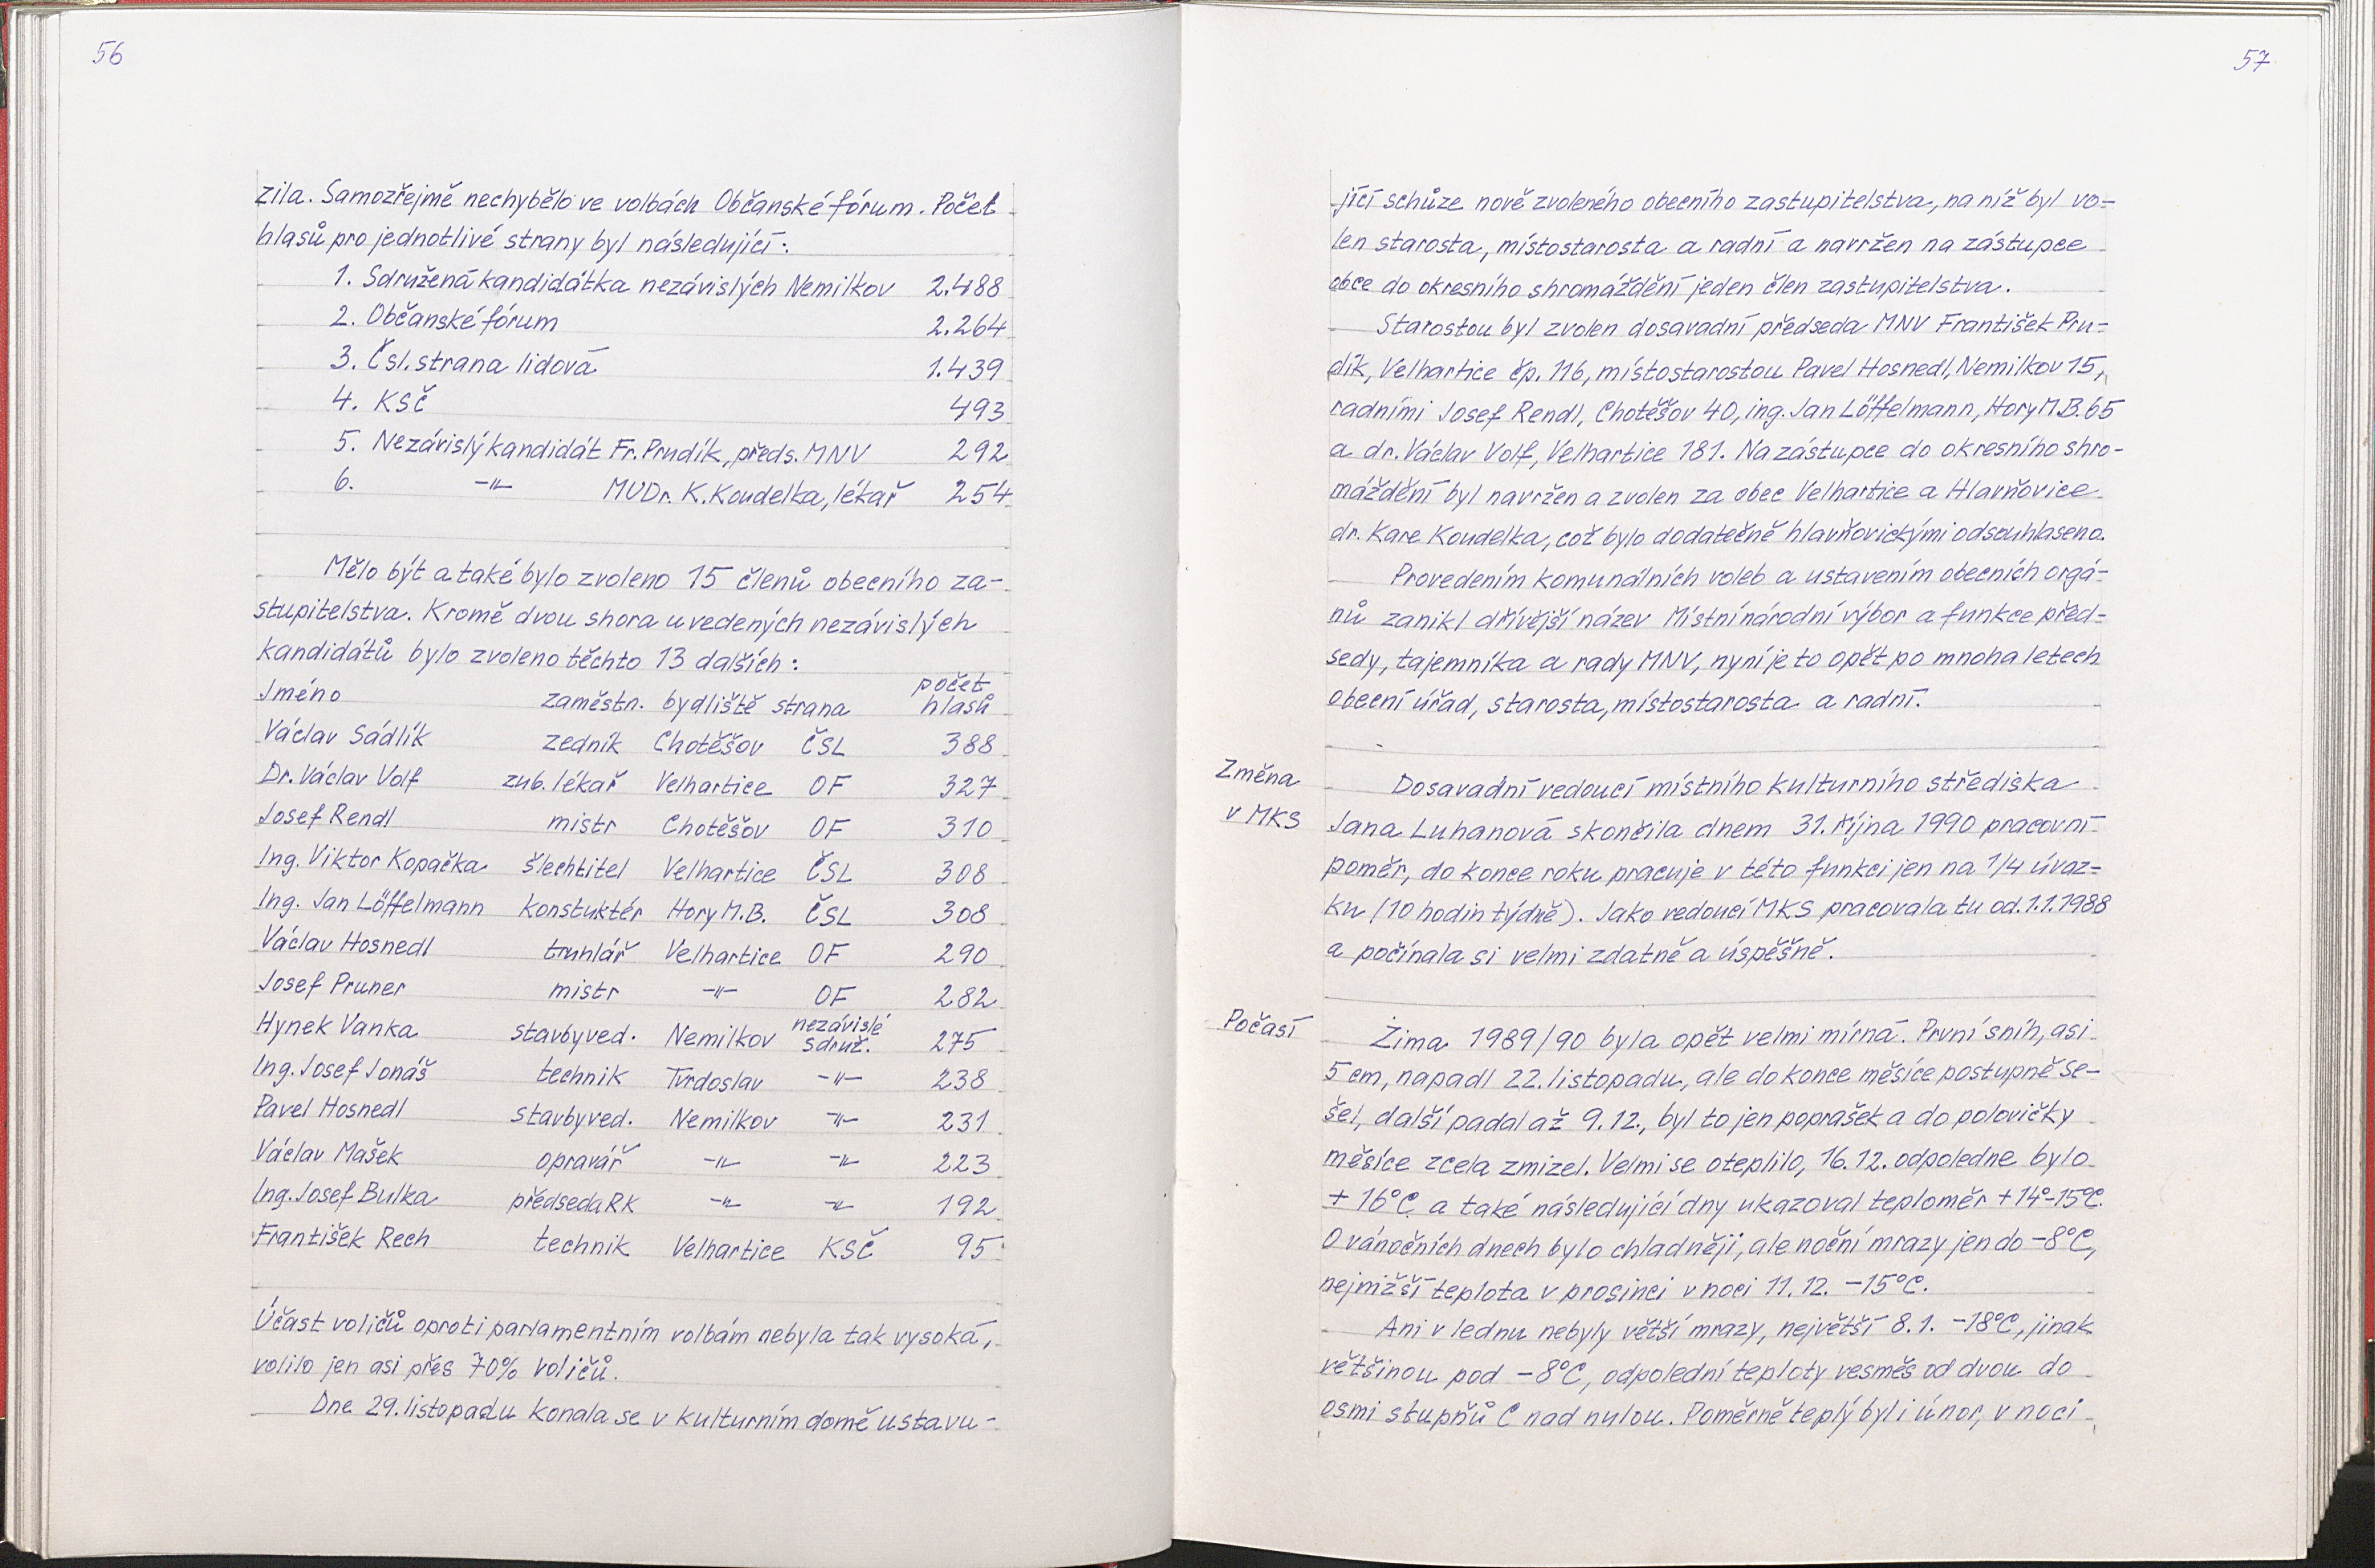 56
zila. Samozřejmě nechybělo ve volbách Občanské fórum. Počet
hlasů pro jednotlivé strany byl následující:
1. Sdružená kandidátka nezávislých Nemilkov 2.488
2. Občanské fórum 2.264
3. Čsl. strana lidová 1.439
4. KSČ 493
5. Nezávislý kandidát Fr. Prudík, předs. MNV 292
6. -"- MUDr. K. Koudelka, lékař 254
Mělo být a také bylo zvoleno 15 členů obecního za-
stupitelstva. Kromě dvou shora uvedených nezávislých
kandidátů bylo zvoleno těchto 13 dalších:
Jméno zaměstn. bydliště strana počet hlasů
Václav Sádlík zedník Chotěšov ČSL 388
Dr. Václav Volf zub. lékař Velhartice OF 327
Josef Rendl mistr Chotěšov OF 310
Ing. Viktor Kopačka šlechtitel Velhartice ČSL 308
Ing. Jan Löffelmann konstuktér Hory M.B. ČSL 308
Václav Hosnedl truhlář Velhartice OF 290
Josef Pruner mistr -"- OF 282
Hynek Vanka stavbyved. Nemilkov nezávislé sdruž. 275
Ing. Josef Jonáš technik Tvrdoslav -"- 238
Pavel Hosnedl stavbyved. Nemilkov -"- 231
Václav Mašek opravář -"- -"- 223
Ing. Josef Bulka předseda RK -"- -"- 192
František Rech technik Velhartice KSČ 95
Účast voličů oproti parlamentním volbám nebyla tak vysoká,
volilo jen asi přes 70% voličů.
Dne 29. listopadu konala se v kulturním domě ustavu-
57
jící schůze nově zvoleného obecního zastupitelstva, na níž byl vo=
len starosta, místostarosta a radní a navržen na zástupce
obce do okresního shromáždění jeden člen zastupitelstva.
Starostou byl zvolen dosavadní předseda MNV František Pru=
dík, Velhartice čp. 116, místostarostou Pavel Hosnedl, Nemilkov 15,
radními Josef Rendl, Chotěšov 40, ing. Jan Löffelmann, Hory M.B. 65
a dr. Václav Volf, Velhartice 181. Na zástupce do okresního shro-
máždění byl navržen a zvolen za obec Velhartice a Hlavňovice
dr. Kare Koudelka, což bylo dodatečně hlavňovickými odsouhlaseno.
Provedením komunálních voleb a ustavením obecních orgá=
nů zanikl dřívější název Místní národní výbor a funkce před=
sedy, tajemníka a rady MNV, nyní je to opět po mnoha letech
obecní úřad, starosta, místostarosta a radní.
Změna
v MKS
Dosavadní vedoucí místního kulturního střediska
Jana Luhanová skončila dnem 31. října 1990 pracovní
poměr, do konce roku pracuje v této funkci jen na 1/4 úvaz=
ku (10 hodin týdně). Jako vedoucí MKS pracovala tu od 1.1.1988
a počínala si velmi zdatně a úspěšně.
Počasí
Zima 1989/90 byla opět velmi mírná. První sníh, asi
5 cm, napadl 22. listopadu, ale do konce měsíce postupně se-
šel, další padal až 9.12., byl to jen poprašek a do polovičky
měsíce zcela zmizel. Velmi se oteplilo, 16.12. odpoledne bylo
+ 16°C a také následující dny ukazoval teploměr +14°-15°C.
O vánočních dnech bylo chladněji, ale noční mrazy jen do -8°C,
nejnižší teplota v prosinci v noci 11.12. -15°C.
Ani v lednu nebyly větší mrazy, největší 8.1. -18°C, jinak
většinou pod -8°C, odpolední teploty vesměs od dvou do
osmi stupňů C nad nulou. Poměrně teplý byl i únor, v noci